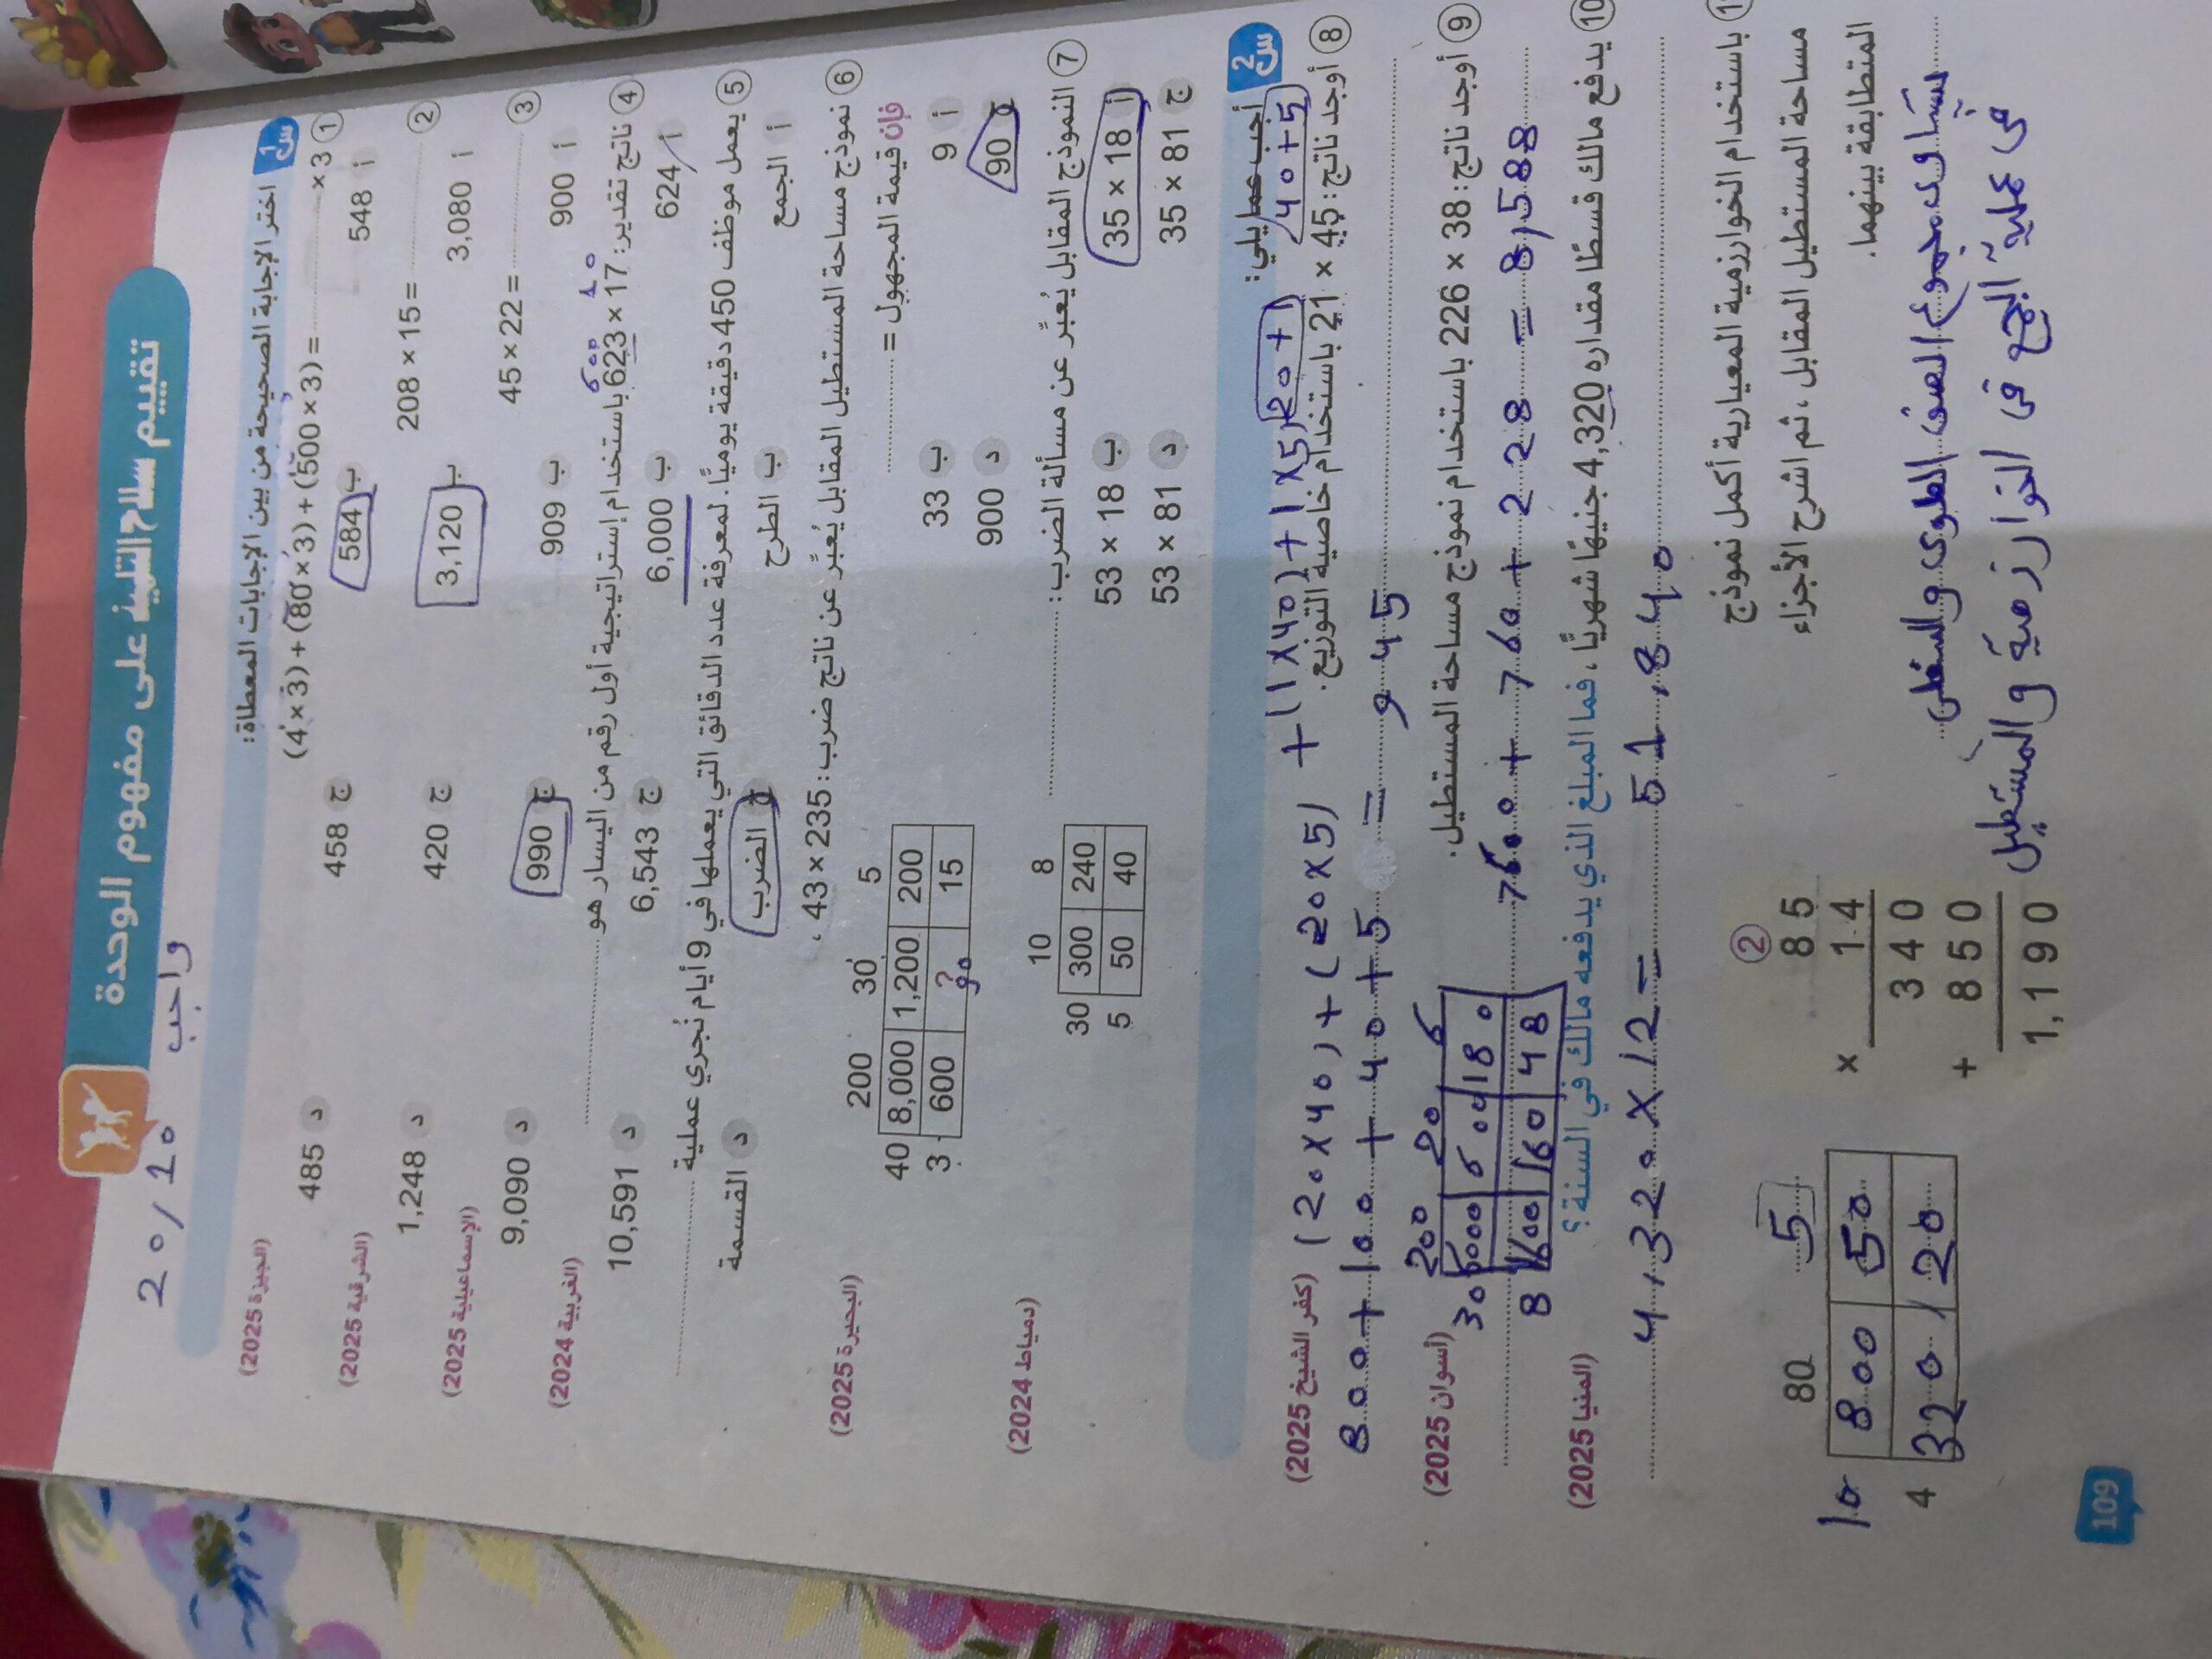 20/10 واجب
تقييم سلاح التلميذ على مفهوم الوحدة
س1 اختر الإجابة الصحيحة من بين الإجابات المعطاة:
1 (4 × 3) + (80 × 3) + (500 × 3) = ........ × 3 (الجيزة 2025)
أ 548 ب 584 ج 458 د 485
2 208 × 15 = ........ (الشرقية 2025)
أ 3,080 ب 3,120 ج 420 د 1,248
3 45 × 22 = ........ (الإسماعيلية 2025)
أ 900 ب 909 ج 990 د 9,090
600 10
4 ناتج تقدير: 17 × 623 باستخدام إستراتيجية أول رقم من اليسار هو ........ (الغربية 2024)
أ 624 ب 6,000 ج 6,543 د 10,591
5 يعمل موظف 450 دقيقة يوميًا. لمعرفة عدد الدقائق التي يعملها في 9 أيام نُجري عملية ........
أ الجمع ب الطرح ج الضرب د القسمة
6 نموذج مساحة المستطيل المقابل يُعبِّر عن ناتج ضرب: 235 × 43، (البحيرة 2025)
فإن قيمة المجهول = ........
200 30 5
40 8,000 1,200 200
3 600 ? 15
90
أ 9 ب 33
ج 90 د 900
7 النموذج المقابل يُعبِّر عن مسألة الضرب: ........ (دمياط 2024)
10 8
30 300 240
5 50 40
أ 35 × 18 ب 53 × 18
ج 35 × 81 د 53 × 81
س2 أجب عما يلي:
40+5 20+1
8 أوجد ناتج: 45 × 21 باستخدام خاصية التوزيع. (كفر الشيخ 2025)
(20×40)+(20×5)+(1×40)+1×5)
800+100+40+5=945
9 أوجد ناتج: 38 × 226 باستخدام نموذج مساحة المستطيل. (أسوان 2025)
200 20 6
30 6000 600 180
8 1600 160 48
7600+760+228=8,588
10 يدفع مالك قسطًا مقداره 4,320 جنيهًا شهريًّا، فما المبلغ الذي يدفعه مالك في السنة؟ (المنيا 2025)
4,320×12=51,840
باستخدام الخوارزمية المعيارية أكمل نموذج
مساحة المستطيل المقابل، ثم اشرح الأجزاء
المتطابقة بينهما.
2
8 5
× 1 4
3 4 0
+ 8 5 0
1,1 9 0
80 5
10 800 50
4 320 20
مجموع الصف العلوى والسفلى
فى عملية الجمع فى الخوارزمية والمستطيل
109